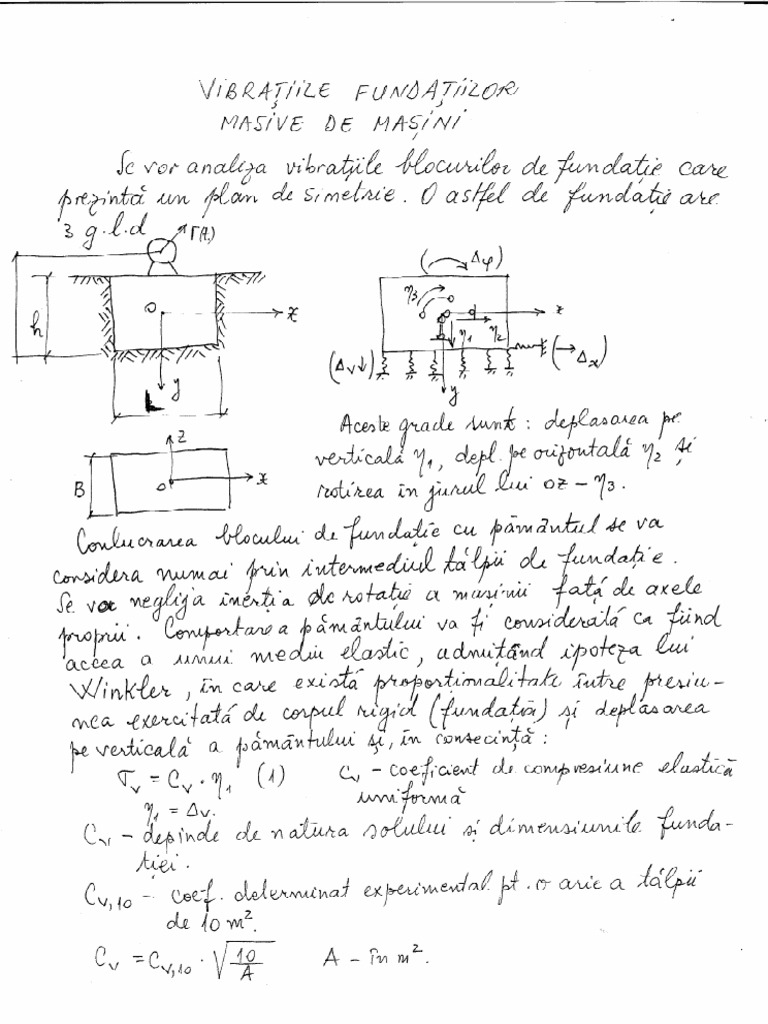 VIBRAȚIILE FUNDAȚIILOR
MASIVE DE MAȘINI
Se vor analiza vibrațiile blocurilor de fundație care
prezintă un plan de simetrie. O astfel de fundație are
3 g.l.d
h
O
x
y
L
(Δφ)
η3
η1
η2
x
(Δv↓)
(→Δx)
y
B
z
O
x
Aceste grade sunt: deplasarea pe
verticală η1, depl. pe orizontală η2 și
rotirea în jurul lui oz – η3.
Conlucrarea blocului de fundație cu pământul se va
considera numai prin intermediul tălpii de fundație.
Se va neglija inerția de rotație a mașinii față de axele
proprii. Comportarea pământului va fi considerată ca fiind
aceea a unui mediu elastic, admițând ipoteza lui
Winkler, în care există proporționalitate între presiu-
nea exercitată de corpul rigid (fundația) și deplasarea
pe verticală a pământului și, în consecință:
σv = Cv · η1 (1) Cv – coeficient de compresiune elastică
uniformă
η1 = Δv.
Cv – depinde de natura solului și dimensiunile funda-
ției.
Cv,10 – coef. determinat experimental pt. o arie a tălpii
de 10 m².
Cv = Cv,10 · √(10/A) A – în m².